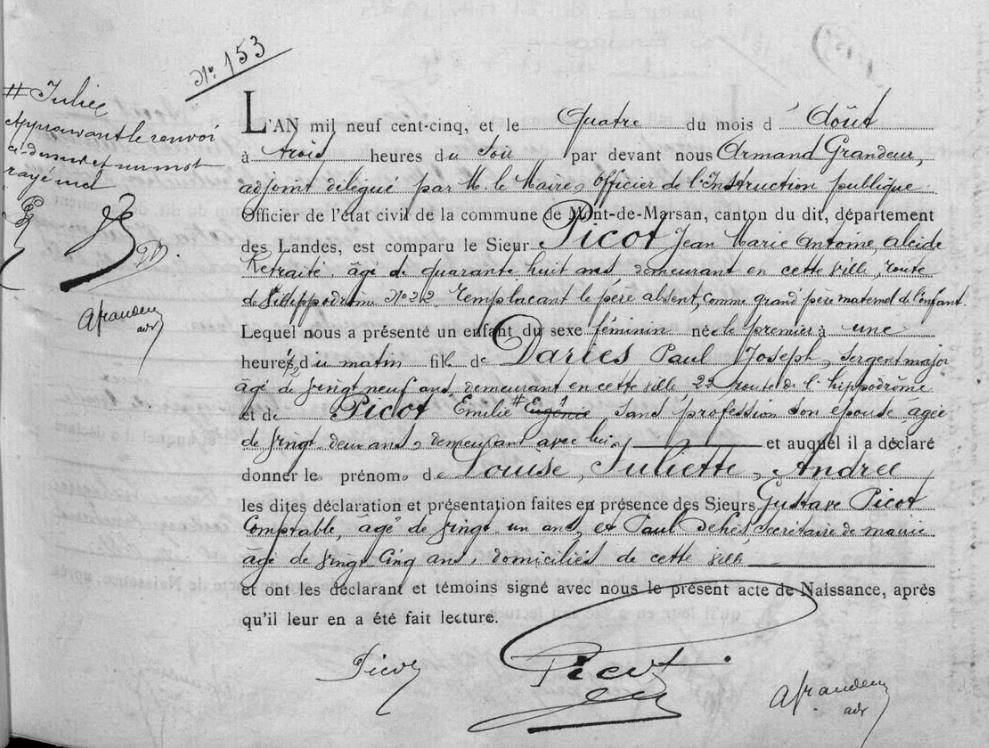 N° 153
# Julie
Approuvant le renvoi
ci-dessus et un mot
rayé nul
L'AN mil neuf cent-cinq, et le Quatre du mois d'Août
à trois heures du Soir par devant nous Armand Grandeur,
adjoint délégué par M. le Maire, Officier de l'Instruction publique
Officier de l'état civil de la commune de Mont-de-Marsan, canton du dit, département
des Landes, est comparu le Sieur Picot Jean Marie Antoine, alcide
Retraité, âgé de quarante huit ans demeurant en cette ville, route
de l'Hippodrome N° 22, remplaçant le père absent, comme grand père maternel de l'enfant.
Lequel nous a présenté un enfant du sexe féminin née le premier à une
heures du matin fille de Dariès Paul Joseph, Sergent major
âgé de vingt neuf ans, demeurant en cette ville 22 route de l'hippodrôme
et de Picot Emilie # Eugénie, sans profession son épouse âgée
de vingt-deux ans, demeurant avec lui, et auquel il a déclaré
donner les prénoms de Louise, Juliette, Andrée
les dites déclaration et présentation faites en présence des Sieurs Gustave Picot
Comptable, âgé de vingt un ans, et Paul Dehez, secrétaire de mairie
âgé de vingt cinq ans, domiciliés de cette ville
et ont les déclarant et témoins signé avec nous le présent acte de Naissance, après
qu'il leur en a été fait lecture.
Picot
Picot
AGrandeur
adj
AGrandeur
adj